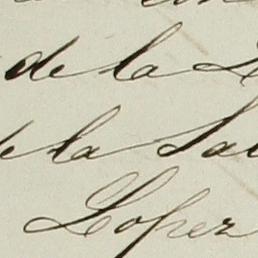 de la
de la Sal
Lopez